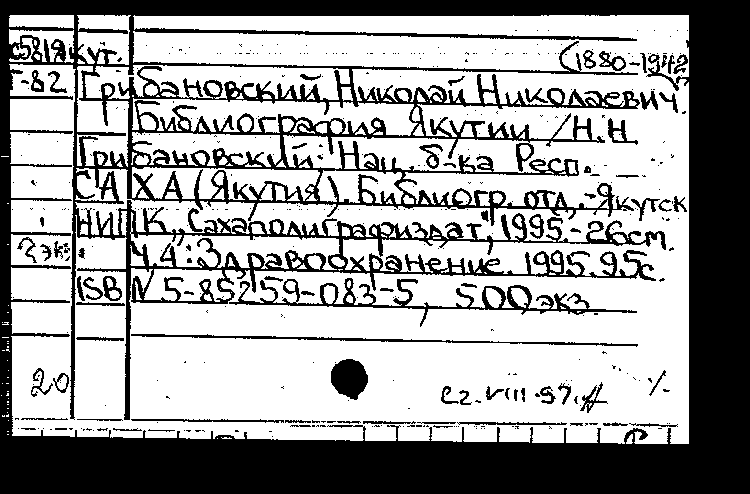 с5819кут.
(1880-1942)
Г-82 Грибановский, Николай Николаевич.
Библиография Якутии / Н.Н.
Грибановский; Нац. б-ка Респ.
САХА (Якутия). Библиогр. отд. - Якутск
НИПК "Сахаполиграфиздат", 1995. - 26 см.
2 экз. Ч. 4: Здравоохранение. 1995. 95с.
ISBN 5-85259-083-5, 500 экз.
20
22.VIII.97.